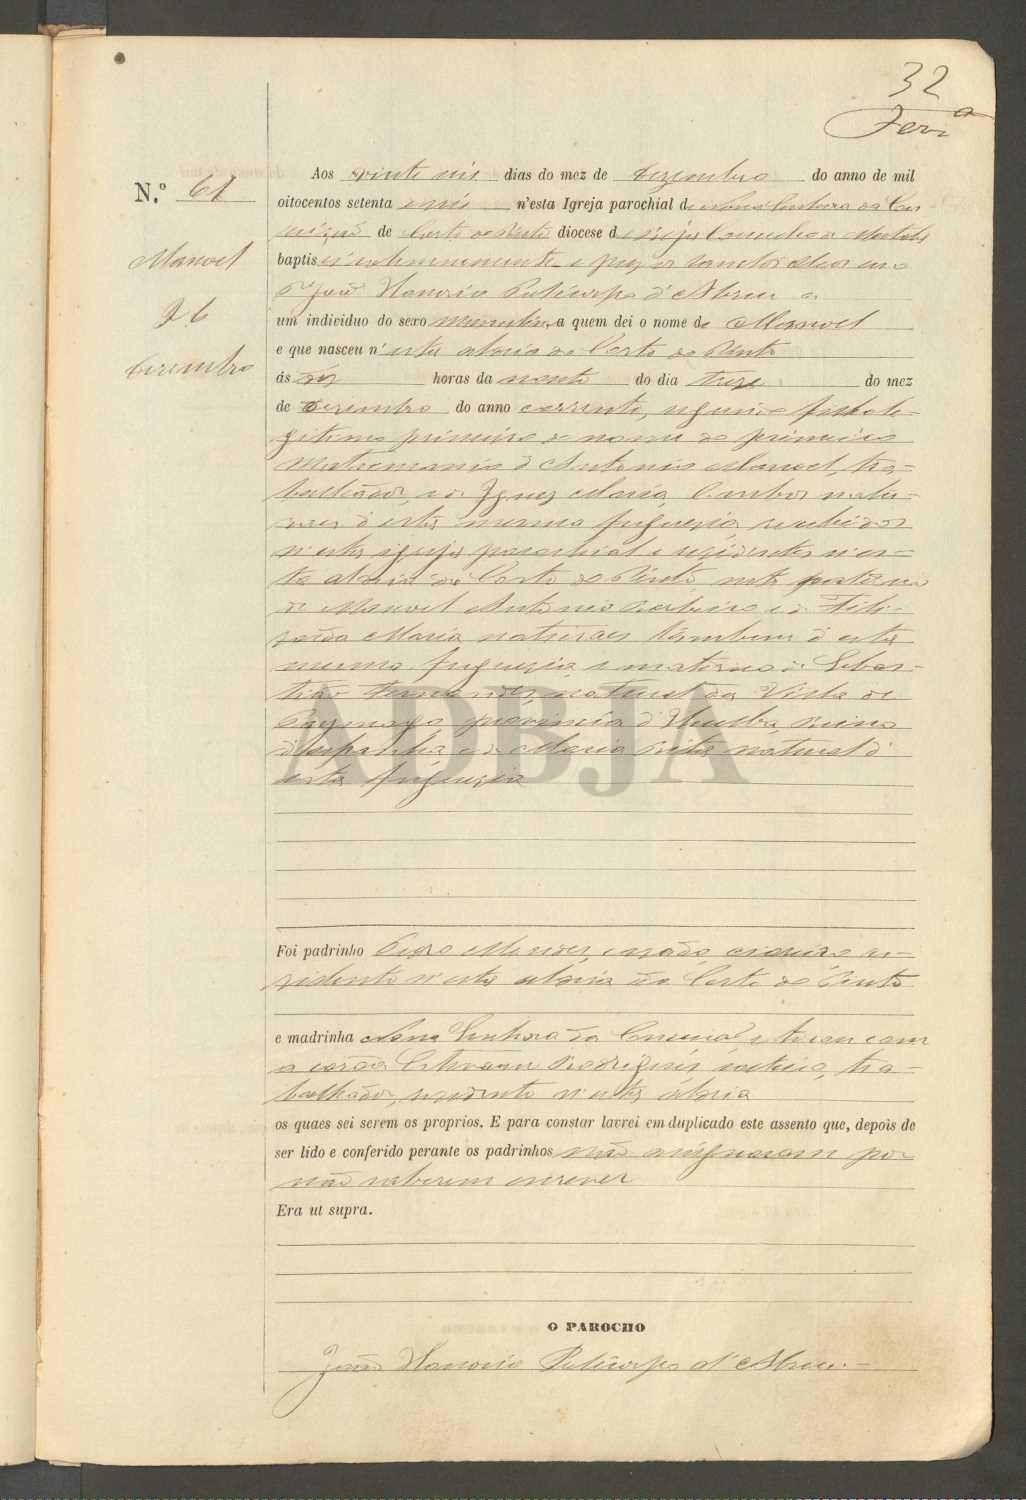 32
N.º 61
Manoel
26
Dezembro
Aos vinte seis dias do mez de Dezembro do anno de mil
oitocentos setenta e seis n'esta Igreja parochial de Nossa Senhora da Con
ceição de Corte do Pinto diocese de Beja Concelho de Mertola
baptisei solemnemente e puz os sanctos oleos eu o
P.e João Honorio Policarpo d'Abreu a
um individuo do sexo masculino, a quem dei o nome de Manoel
e que nasceu n'esta aldeia de Corte do Pinto
ás dez horas da noute do dia treze do mez
de Dezembro do anno corrente, filho le-
gitimo primeiro do nome do primeiro
Matrimonio d'Antonio Manoel, tra-
balhador, e de Ignez Maria, ambos natu-
raes d'esta mesma freguezia, recebidos
n'esta igreja parochial e residentes n'es-
ta aldeia da Corte do Pinto, neto paterno
de Manoel Antonio e de
Maria, naturaes tambem d'esta
mesma freguezia e materno de Sebas-
tião Fernandes, natural da Villa de
Paymogo provincia d'Huelba, Reino
d'Espanha e de Maria Rita natural d'
esta freguezia
ADBJA
Foi padrinho Pedro Mendes, creado, re-
sidente n'esta aldeia da Corte do Pinto
e madrinha Nossa Senhora da Conceição e tocou com
a corôa Estevam Rodrigues, solteiro, tra-
balhador, residente n'esta aldeia
os quaes sei serem os proprios. E para constar lavrei em duplicado este assento que, depois de
ser lido e conferido perante os padrinhos não assignaram por
não saberem escrever
Era ut supra.
O PAROCHO
João Honorio Policarpo d'Abreu.